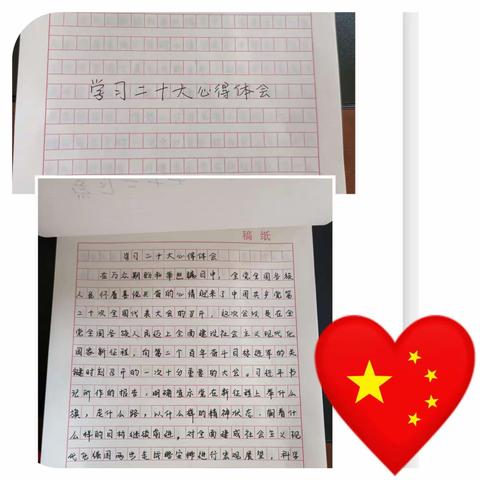 学习二十大心得体会
稿纸
学习二十大心得体会
在万众期盼和举世瞩目中，全党全国各族
人民怀着喜悦的心情迎来了中国共产党第
二十次全国代表大会的召开，这次会议是在全
党全国各族人民迈上全面建设社会主义现代化
国家新征程，向第二个百年奋斗目标进军的关
键时刻召开的一次十分重要的大会。习近平书
记所作的报告，明确宣示党在新征程上举什么
旗，走什么路，以什么样的精神状态，朝着什
么样的目标继续前进。对全面建成社会主义现
代化强国两步走战略安排进行宏观展望，科学